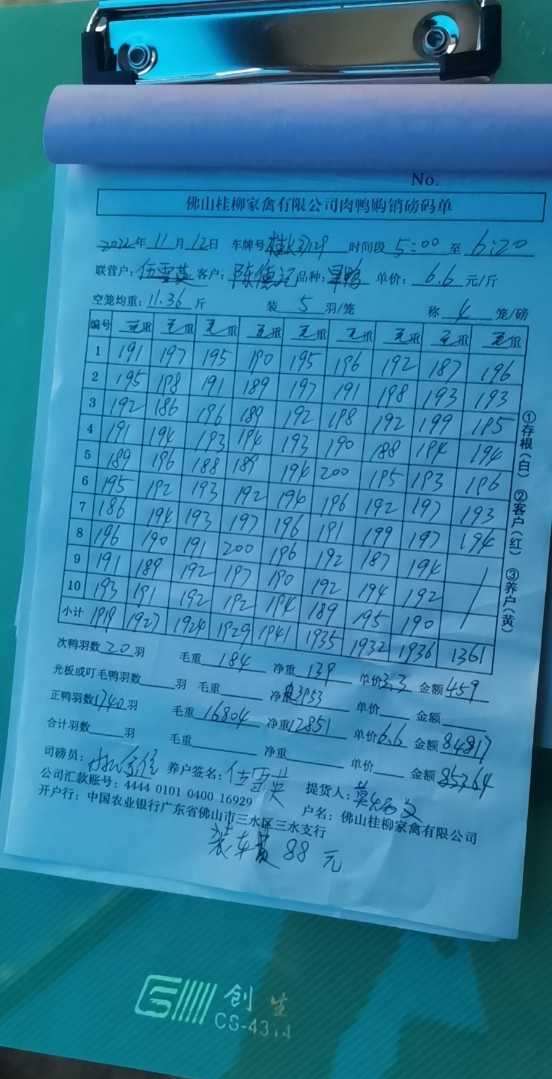 No.
佛山桂柳家禽有限公司肉鸭购销磅码单
2022年11月12日 车牌号 时间段 5:00 至 6:20
联营户: 伍雪英 客户: 陈德记 品种: 旱鸭 单价: 6.6 元/斤
空笼均重: 11.36 斤 装 5 羽/笼 称 4 笼/磅
编号 毛重 毛重 毛重 毛重 毛重 毛重 毛重 毛重 毛重
1 191 197 195 190 195 196 192 187 196
2 195 198 191 189 197 191 198 193 193
3 192 186 196 189 192 198 192 199 195
4 191 194 193 194 193 190 188 194 194
5 189 196 188 189 194 200 195 193 196
6 195 192 193 192 194 196 192 197 193
7 186 194 193 197 196 191 199 197 194
8 196 190 191 200 196 192 187 194
9 191 189 192 197 190 192 194 192
10 193 191 192 192 194 189 195 190
小计 1919 1927 1924 1929 1941 1935 1932 1936 1361
次鸭羽数 20 羽 毛重 184 净重 139 单价 3.3 金额 459
光板或叮毛鸭羽数 羽 毛重 净重 3953 单价 金额
正鸭羽数 1740 羽 毛重 16804 净重 12851 单价 6.6 金额 84817
合计羽数 羽 毛重 净重 单价 金额 85264
司磅员: 养户签名: 伍雪英 提货人:
公司汇款账号: 4444 0101 0400 16929 户名: 佛山桂柳家禽有限公司
开户行: 中国农业银行广东省佛山市三水区三水支行
装车费 88 元
①存根(白) ②客户(红) ③养户(黄)
创生
CS-4314